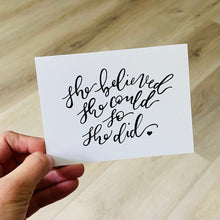 she believed
she could
so
she did.